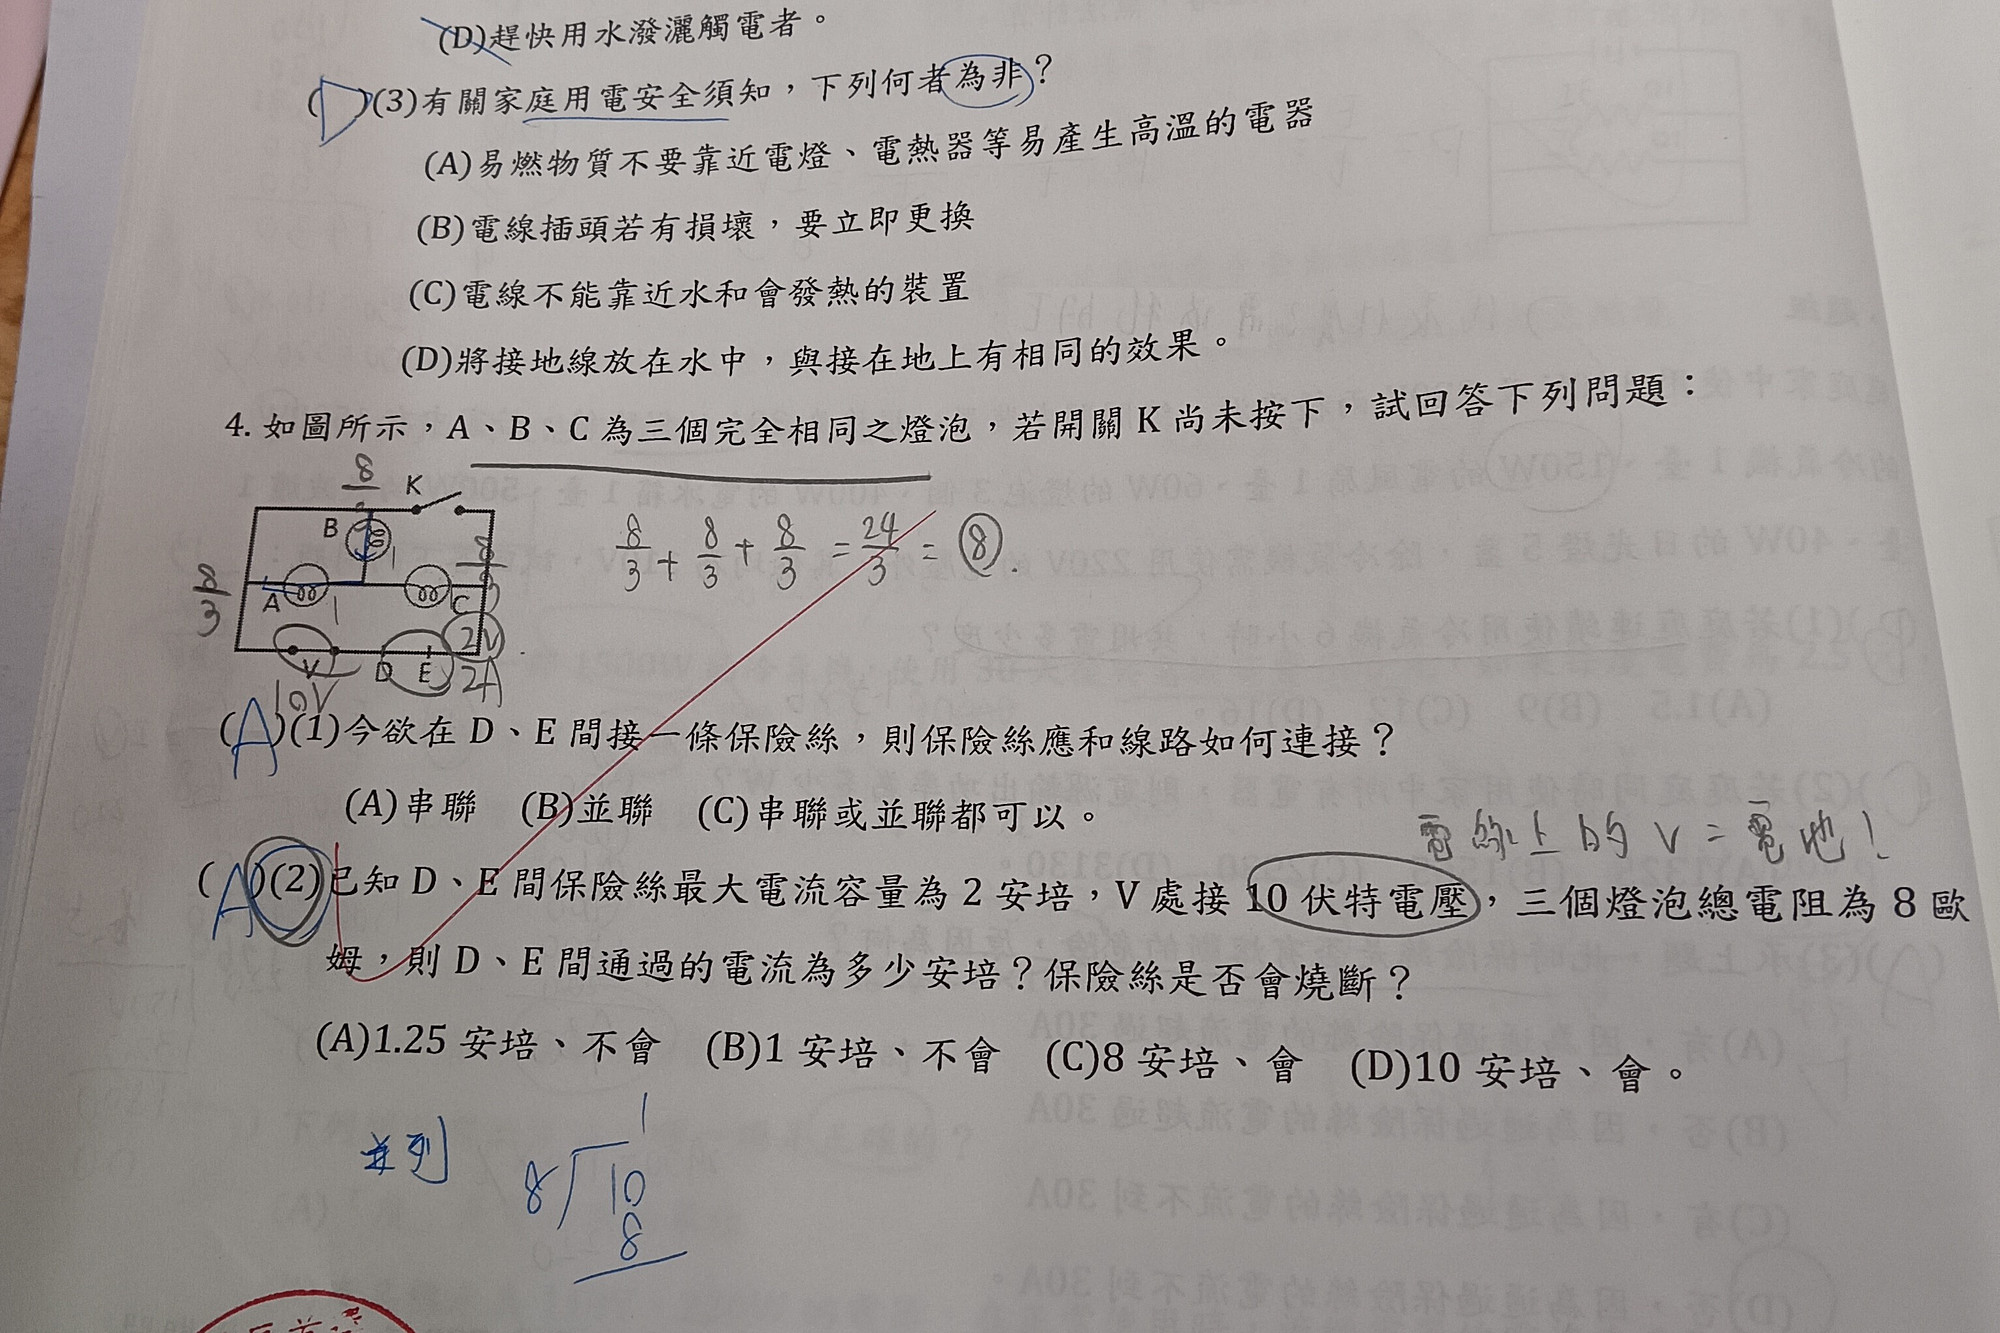 (D)趕快用水潑灑觸電者。
(D)(3)有關家庭用電安全須知，下列何者為非？
(A)易燃物質不要靠近電燈、電熱器等易產生高溫的電器
(B)電線插頭若有損壞，要立即更換
(C)電線不能靠近水和會發熱的裝置
(D)將接地線放在水中，與接在地上有相同的效果。
4. 如圖所示，A、B、C 為三個完全相同之燈泡，若開關 K 尚未按下，試回答下列問題：
8
K
B
8/3
8/3
A
C
1
1
V
D
E
2V
2A
10V
8/3 + 8/3 + 8/3 = 24/3 = 8.
(A)(1)今欲在 D、E 間接一條保險絲，則保險絲應和線路如何連接？
(A)串聯 (B)並聯 (C)串聯或並聯都可以。
電線上的 V = 電池！
(A)(2)已知 D、E 間保險絲最大電流容量為 2 安培，V 處接 10 伏特電壓，三個燈泡總電阻為 8 歐
姆，則 D、E 間通過的電流為多少安培？保險絲是否會燒斷？
(A)1.25 安培、不會 (B)1 安培、不會 (C)8 安培、會 (D)10 安培、會。
並列
1
8 10
8